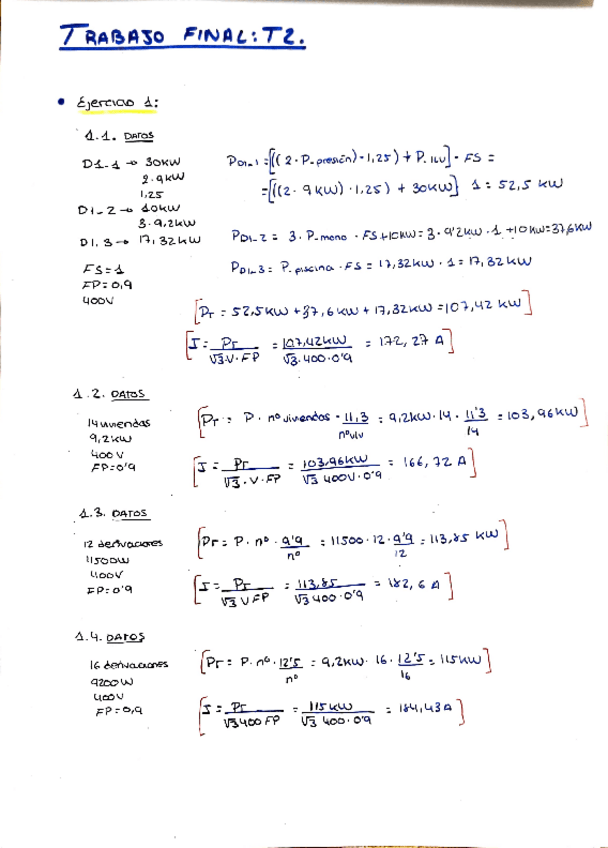 TRABAJO FINAL: T2.
• Ejercicio 1:
1.1. DATOS
D1-1 → 30KW
2·9KW
1,25
D1-2 → 10KW
3·9,2KW
D1.3 → 17,32KW
FS=1
FP=0,9
400V
PD1-1 = [((2·P-presión)·1,25) + P.ILU]·FS =
= [((2·9KW)·1,25) + 30KW] 1 = 52,5 KW
PD1-2 = 3·P-mono·FS+10KW = 3·9'2KW·1+10KW = 37,6KW
PD1-3 = P.piscina·FS = 17,32KW·1 = 17,32KW
[PT = 52,5KW + 37,6KW + 17,32KW = 107,42 KW]
[I = PT / √3·V·FP = 107,42KW / √3·400·0'9 = 172,27 A]
1.2. DATOS
14 viviendas
9,2KW
400V
FP=0'9
[PT = P·nº viviendas·11,3 / nºviv = 9,2KW·14·11'3 / 14 = 103,96KW]
[I = PT / √3·V·FP = 103,96KW / √3 400V·0'9 = 166,72 A]
1.3. DATOS
12 derivaciones
11500W
400V
FP=0'9
[PT = P·nº·9'9 / nº = 11500·12·9'9 / 12 = 113,85 KW]
[I = PT / √3 V FP = 113,85 / √3 400·0'9 = 182,6 A]
1.4. DATOS
16 derivaciones
9200W
400V
FP=0,9
[PT = P·nº·12'5 / nº = 9,2KW·16·12'5 / 16 = 115KW]
[I = PT / √3 400 FP = 115KW / √3 400·0'9 = 184,43A]